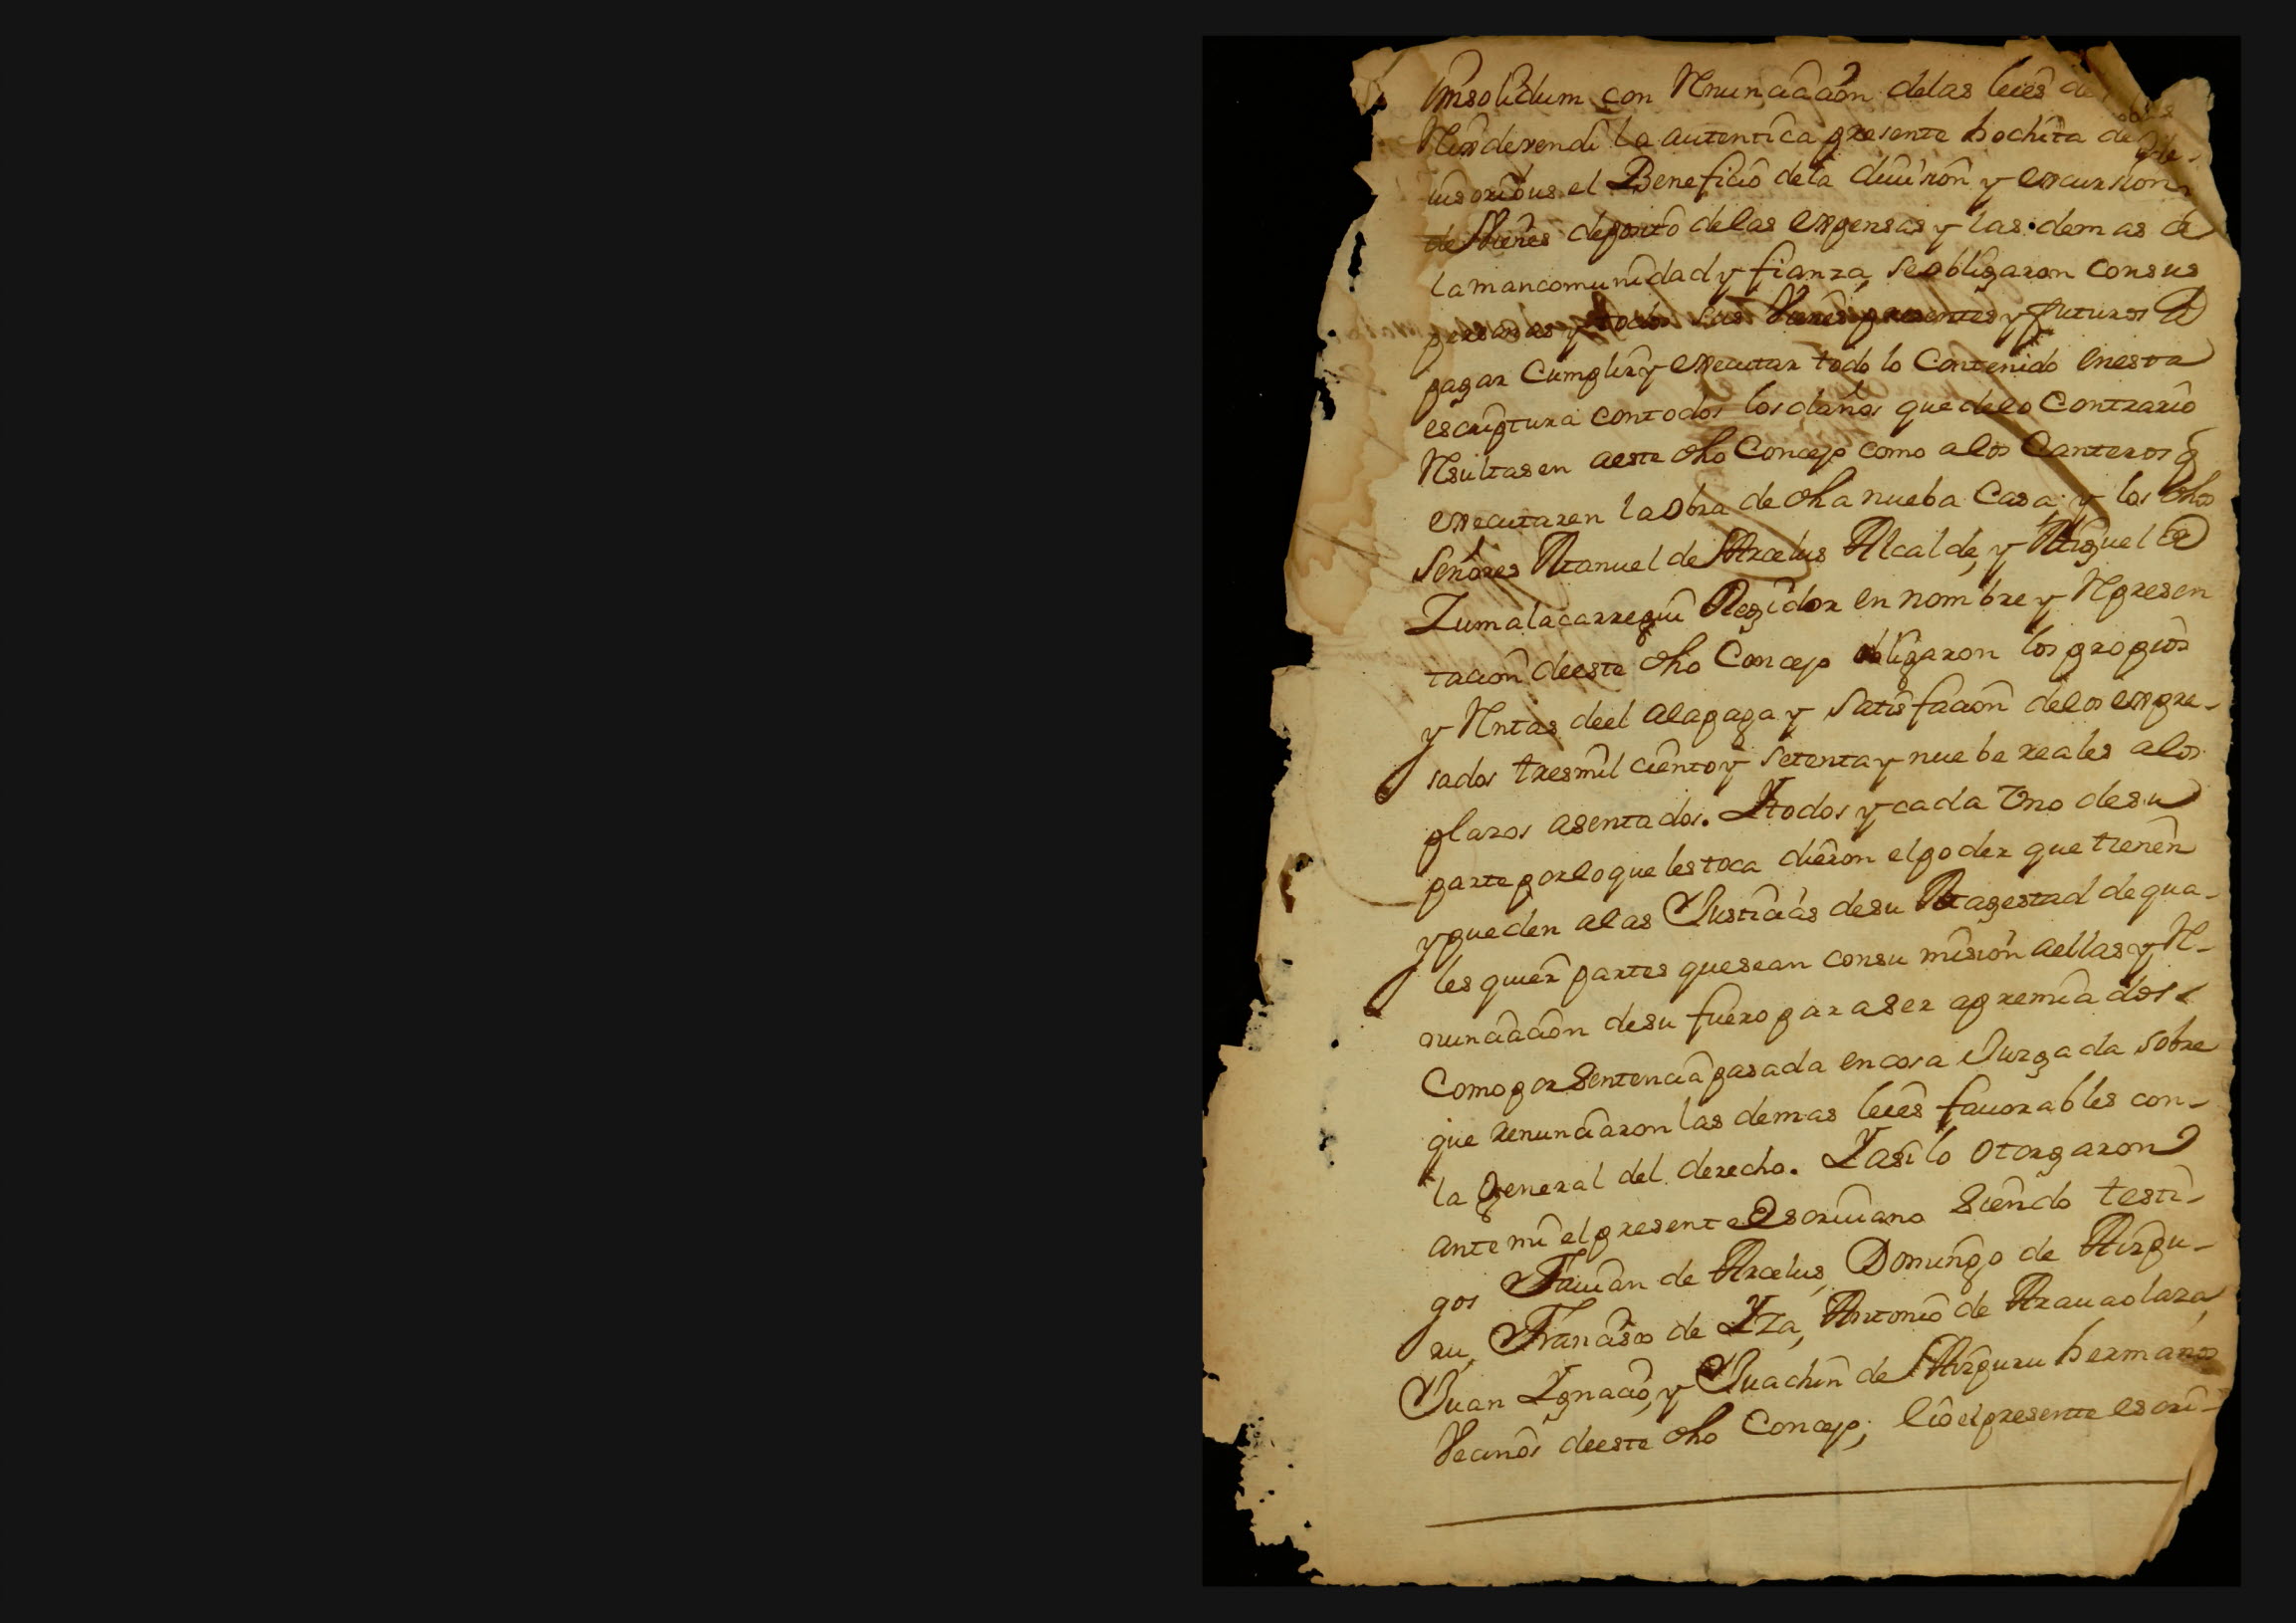 Insolidum con Rnunciacion delas leies de
Reos devendi la autentica presente hochita de fide
iusoribus el Beneficio dela diuision y excursion
de Vienes deposito delas expensas y las demas de
la mancomunidad y fianza, se obligaron consus
personas y todos sus Vienes presentes y futuros de
pagar Cumplir y executar todo lo Contenido enesta
escriptura contodos los daños que delo Contrario
Rsultasen aeste dho Concejo como alos Canteros q
executaren la obra de dha nueba Casa y los dhos
Señores Manuel de Arcelus Alcalde, y Miguel de
Zumalacarregui Regidor en nombre y Rpresen
tacion deeste dho Concejo obligaron los propios
y Rntas deel alapaga y Satisfacion delos expre-
sados tresmil ciento y setenta y nuebe reales alos
plazos asentados. Y todos y cada Vno desu
parte porlo que les toca dieron elpoder que tienen
y pueden alas Justicias desu Magestad de qua-
les quier partes quesean consu mision aellas y R-
nunciacion desu fuero para ser apremiados
Como por Sentencia pasada en cosa Juzgada sobre
que renunciaron las demas leies fauorables con-
la General del derecho. Y asi lo otorgaron
ante mi el presente Escriuano Siendo testi-
gos Fauian de Arcelus, Domingo de Aizpu-
ru, Francisco de Yza, Antonio de Arauaolaza,
Juan Ygnacio, y Juachin de Aizpuru hermanos
Vecinos deeste dho Concejo; Eio el presente escri-